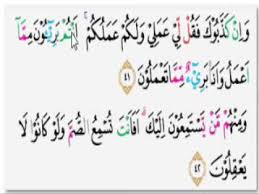 وَاِنْ كَذَّبُوْكَ فَقُلْ لِّيْ عَمَلِيْ وَلَكُمْ عَمَلُكُمْ ۚ اَنْتُمْ بَرِيْۤـُٔوْنَ مِمَّآ
اَعْمَلُ وَاَنَا۠ بَرِيْۤءٌ مِّمَّا تَعْمَلُوْنَ ٤١
وَمِنْهُمْ مَّنْ يَّسْتَمِعُوْنَ اِلَيْكَ ۗ اَفَاَنْتَ تُسْمِعُ الصُّمَّ وَلَوْ كَانُوْا لَا
يَعْقِلُوْنَ ٤٢